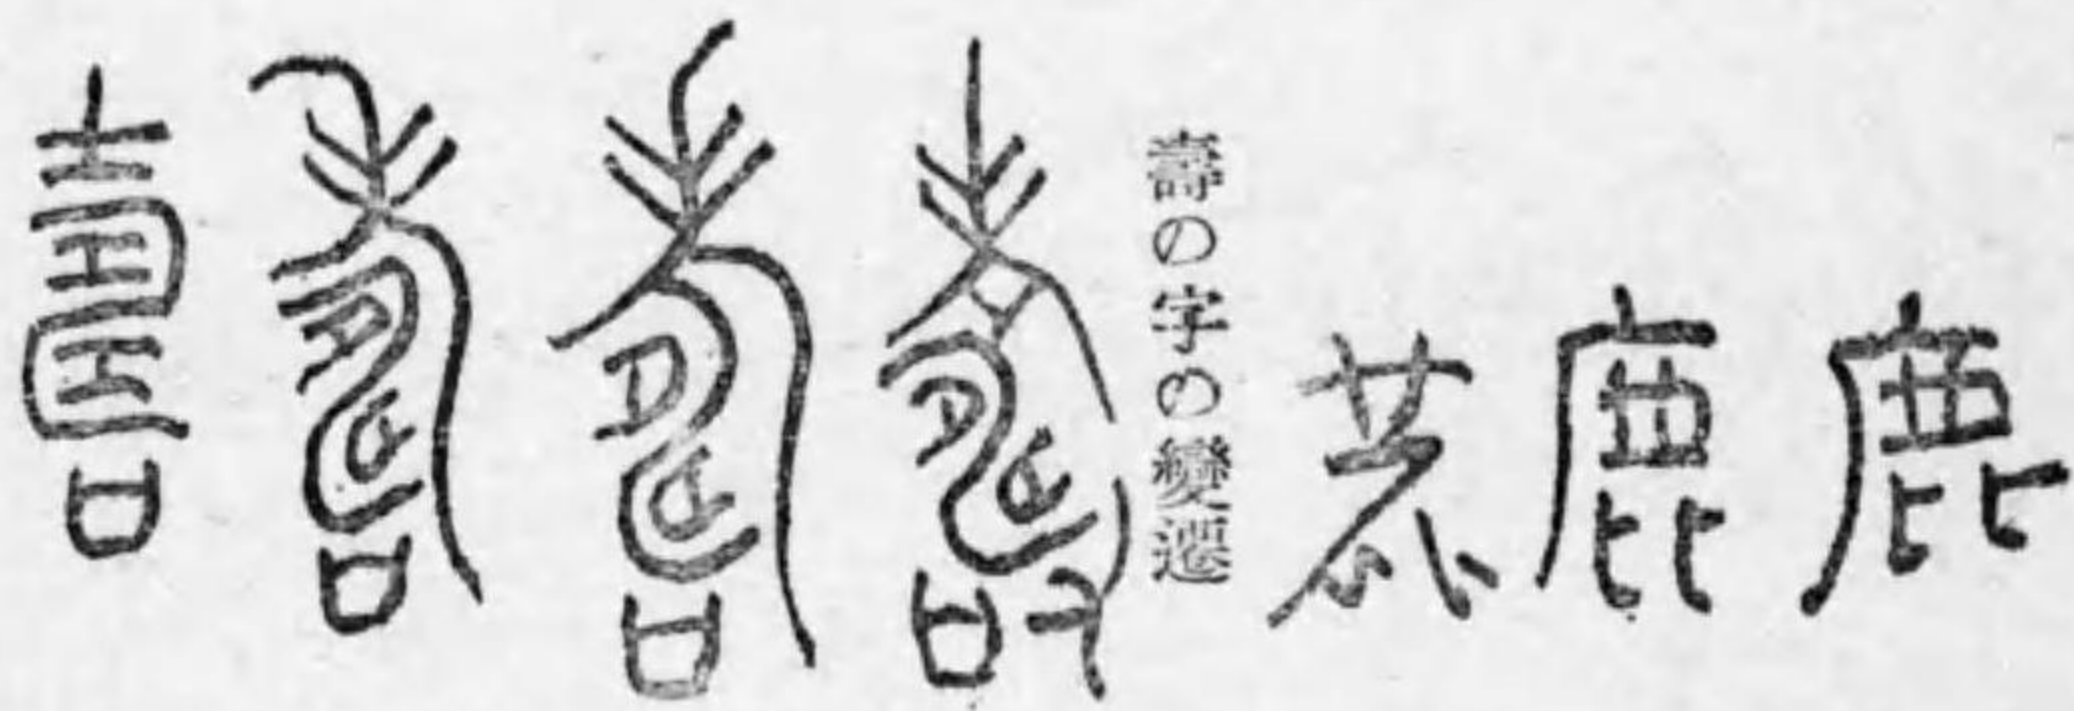 鹿
鹿
壽の字の變遷
壽
壽
壽
壽